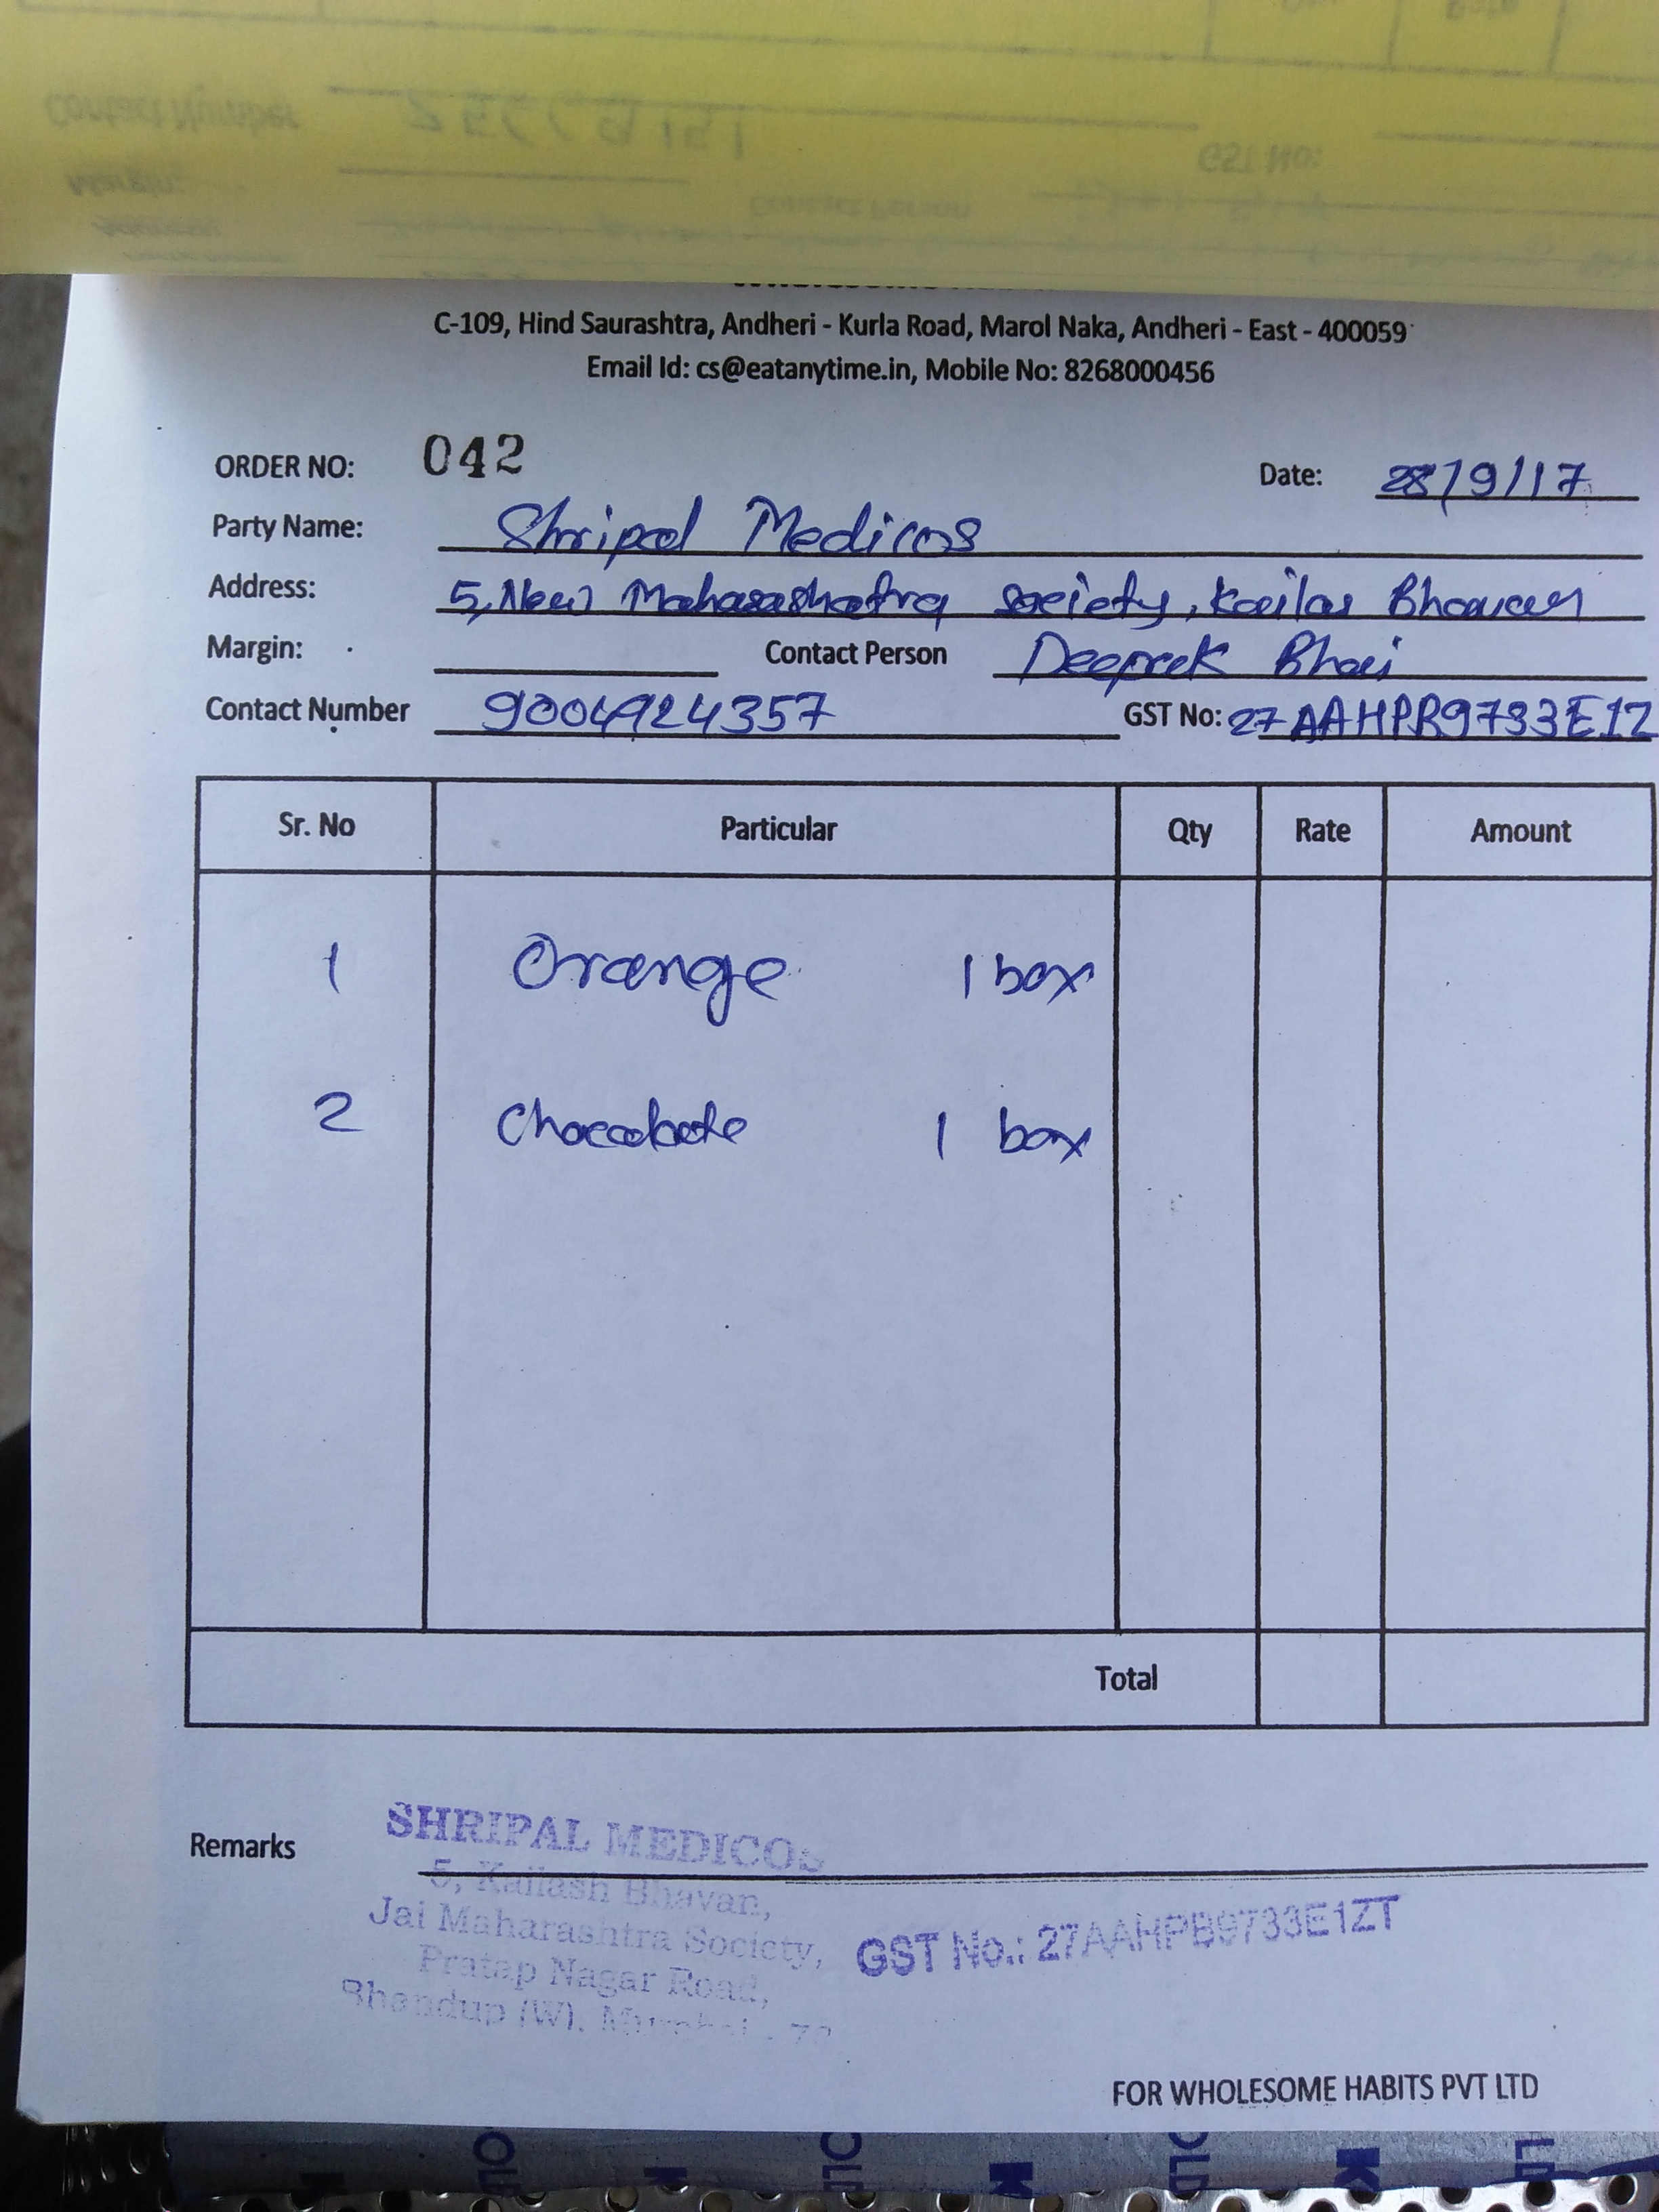 C-109, Hind Saurashtra, Andheri - Kurla Road, Marol Naka, Andheri - East - 400059
Email Id: cs@eatanytime.in, Mobile No: 8268000456
ORDER NO: 042 Date: 28/9/17
Party Name: Shripal Medicos
Address: 5, New Maharashatra society, Kailas Bhavan
Margin: Contact Person Deepak Bhai
Contact Number 9004924357 GST No: 27AAHPB9733E1Z
Sr. No Particular Qty Rate Amount
1 Orange 1 box
2 Chocolate 1 box
Total
Remarks
SHRIPAL MEDICOS
5, Kailash Bhavan,
Jai Maharashtra Society,
Pratap Nagar Road,
Bhandup (W), Mumbai - 78
GST No.: 27AAHPB9733E1ZT
FOR WHOLESOME HABITS PVT LTD